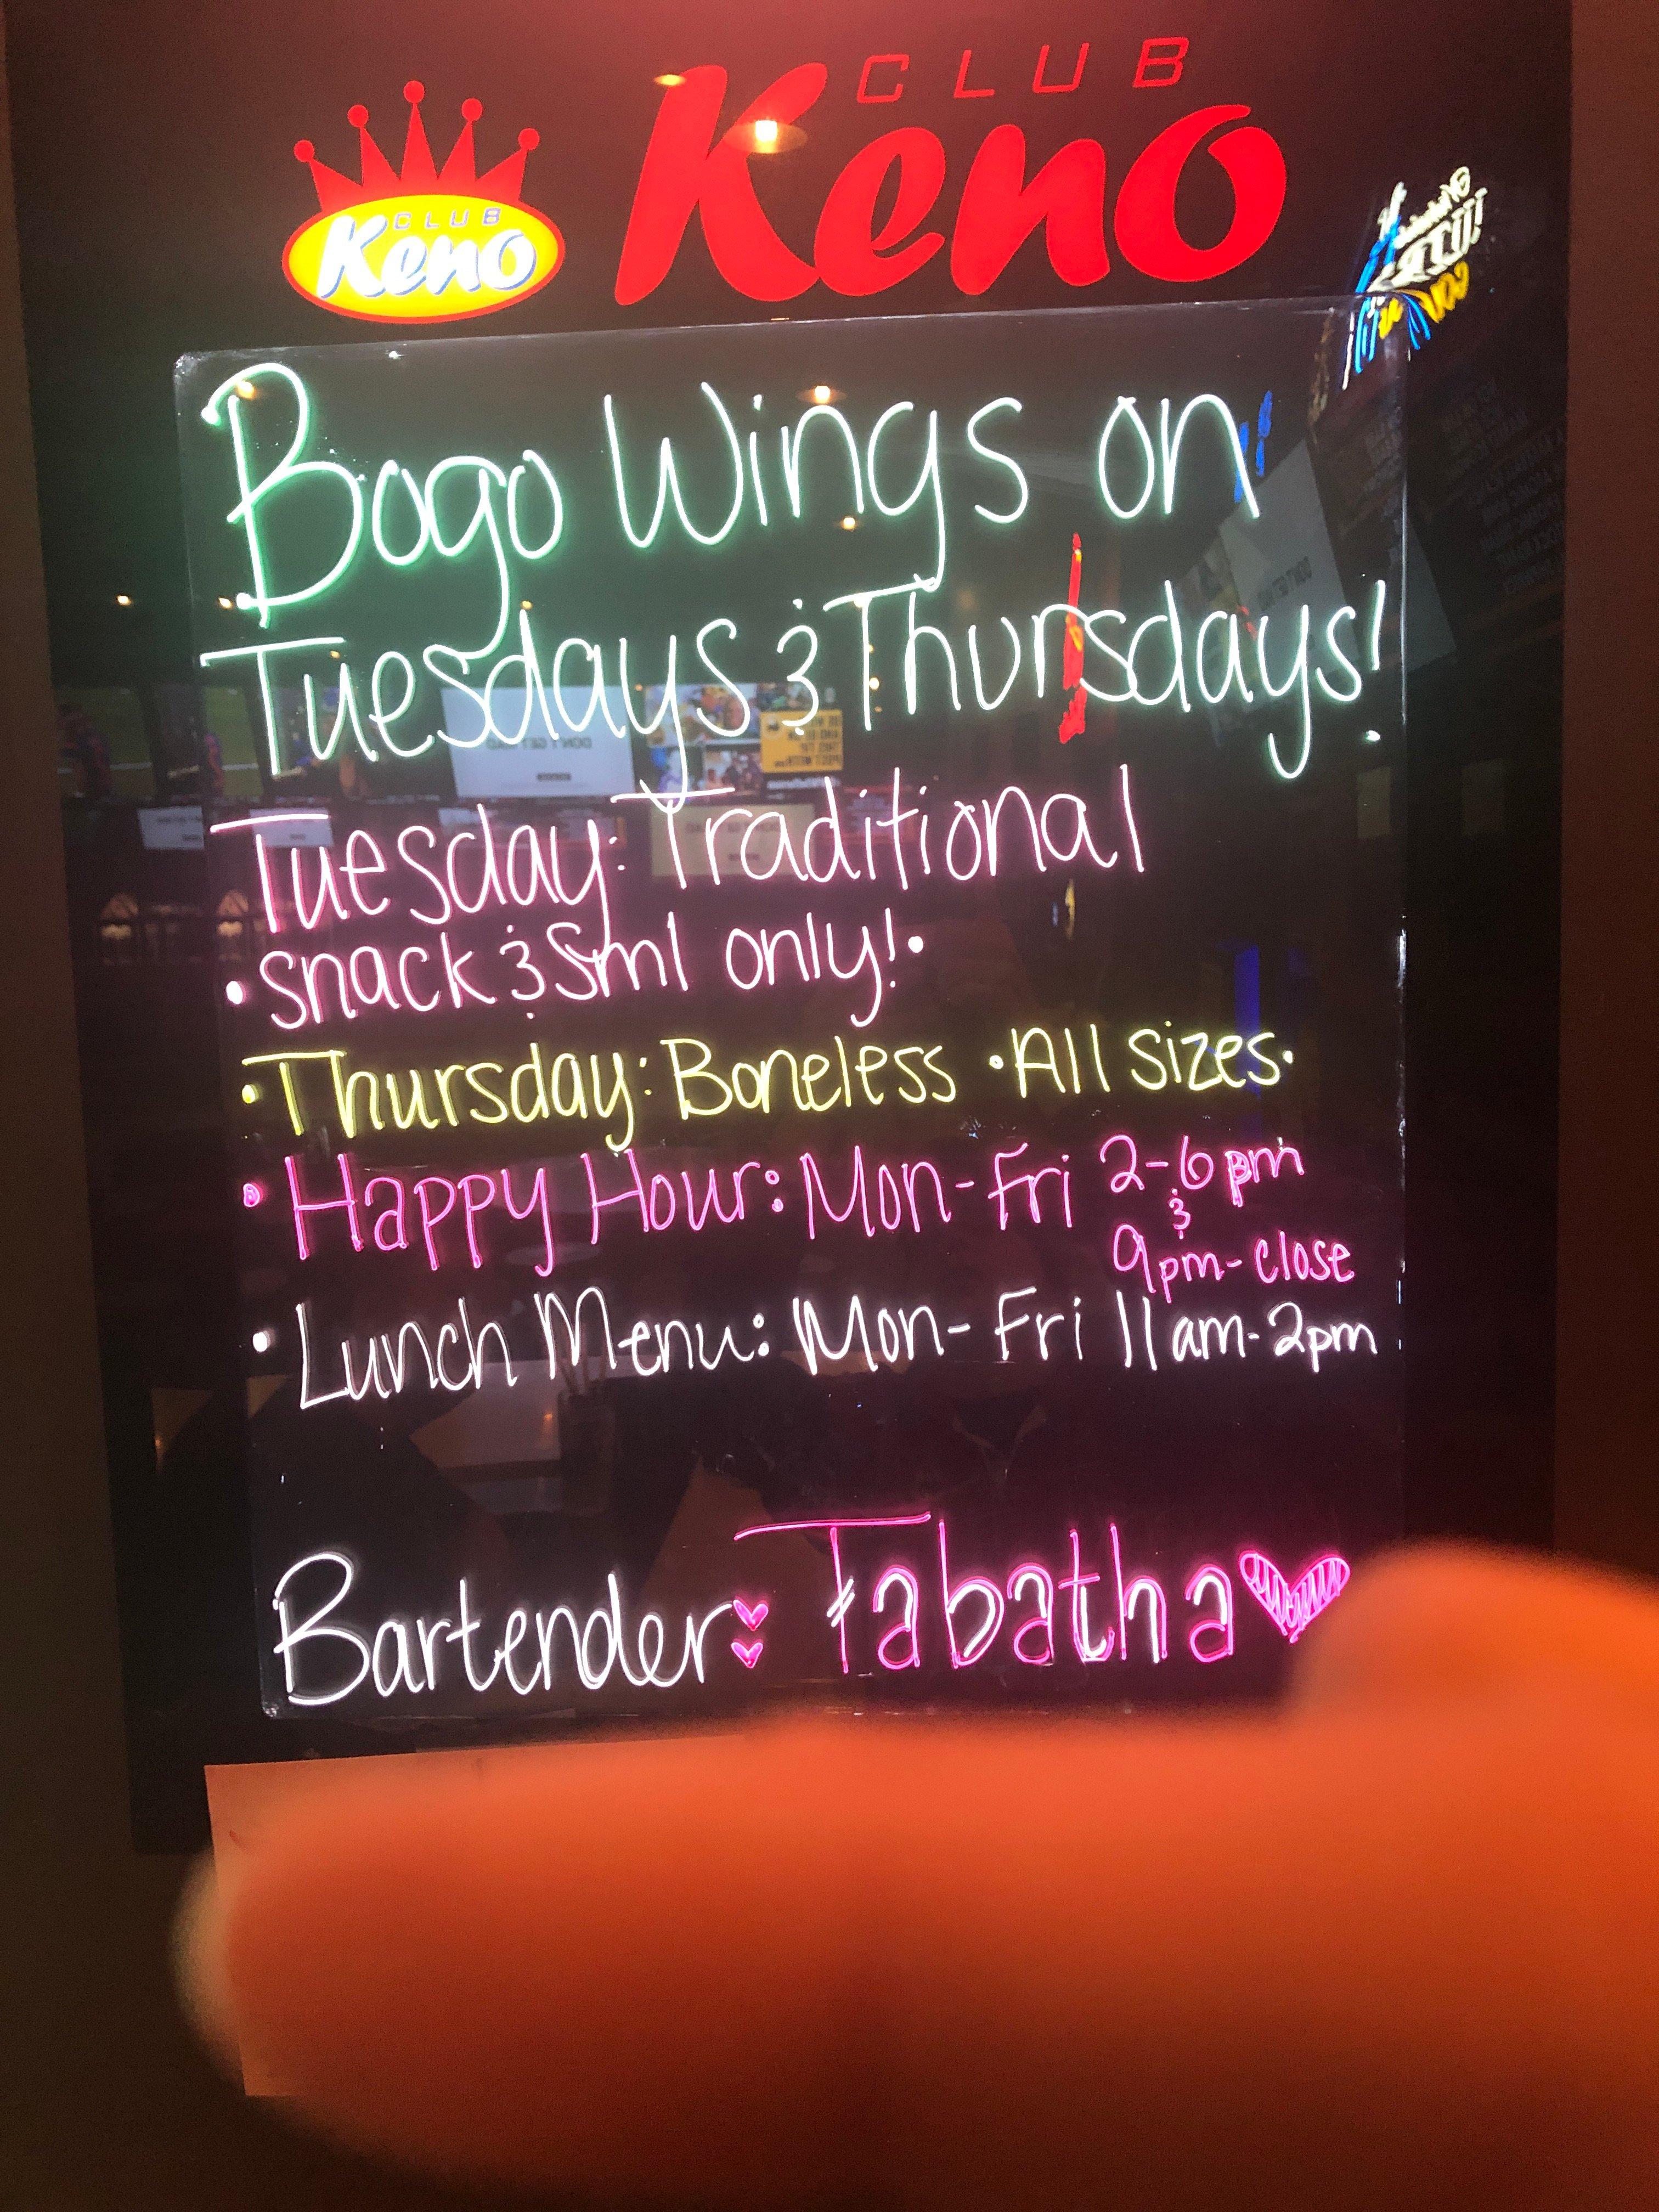 CLUB
Keno
CLUB
Keno
Bogo Wings on
Tuesdays & Thursdays!
Tuesday: Traditional
• snack & Sml only! •
• Thursday: Boneless • All sizes •
• Happy Hour: Mon-Fri 2-6pm
&
9pm-close
• Lunch Menu: Mon-Fri 11am-2pm
Bartender: Tabatha